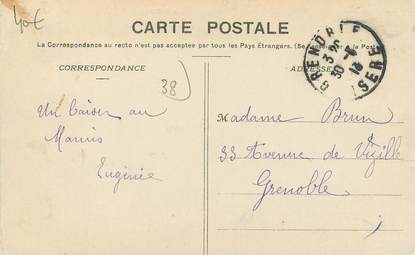 40€
CARTE POSTALE
La Correspondance au recto n'est pas acceptée par tous les Pays Etrangers. (Se à la Poste
CORRESPONDANCE
ADRESSE
38
GRENOBLE
ISERE
Un baiser au
Mamis
Eugénie
Madame Brun
33 Avenue de Vizille
Grenoble